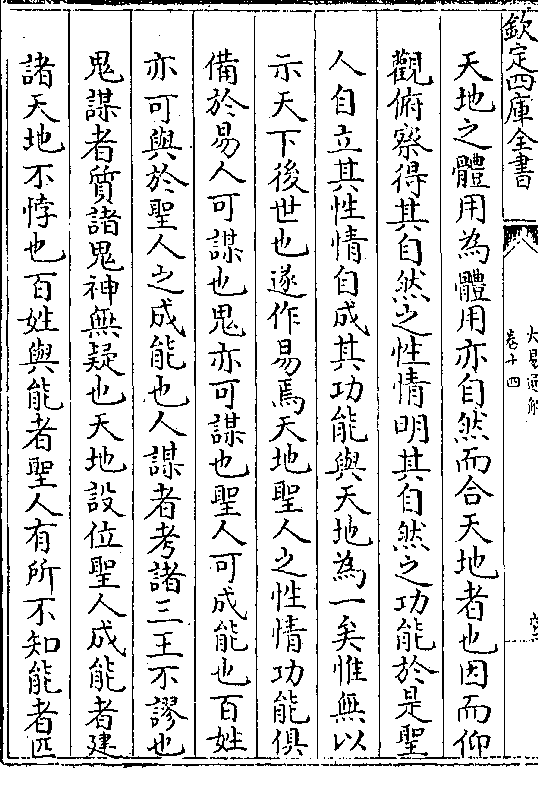 欽定四庫全書
大易通解
卷十四
天地之體用為體用亦自然而合天地者也因而仰
觀俯察得其自然之性情明其自然之功能於是聖
人自立其性情自成其功能與天地為一矣惟無以
示天下後世也遂作易焉天地聖人之性情功能俱
備於易人可謀也鬼亦可謀也聖人可成能也百姓
亦可與於聖人之成能也人謀者考諸三王不謬也
鬼謀者質諸鬼神無疑也天地設位聖人成能者建
諸天地不悖也百姓與能者聖人有所不知能者匹